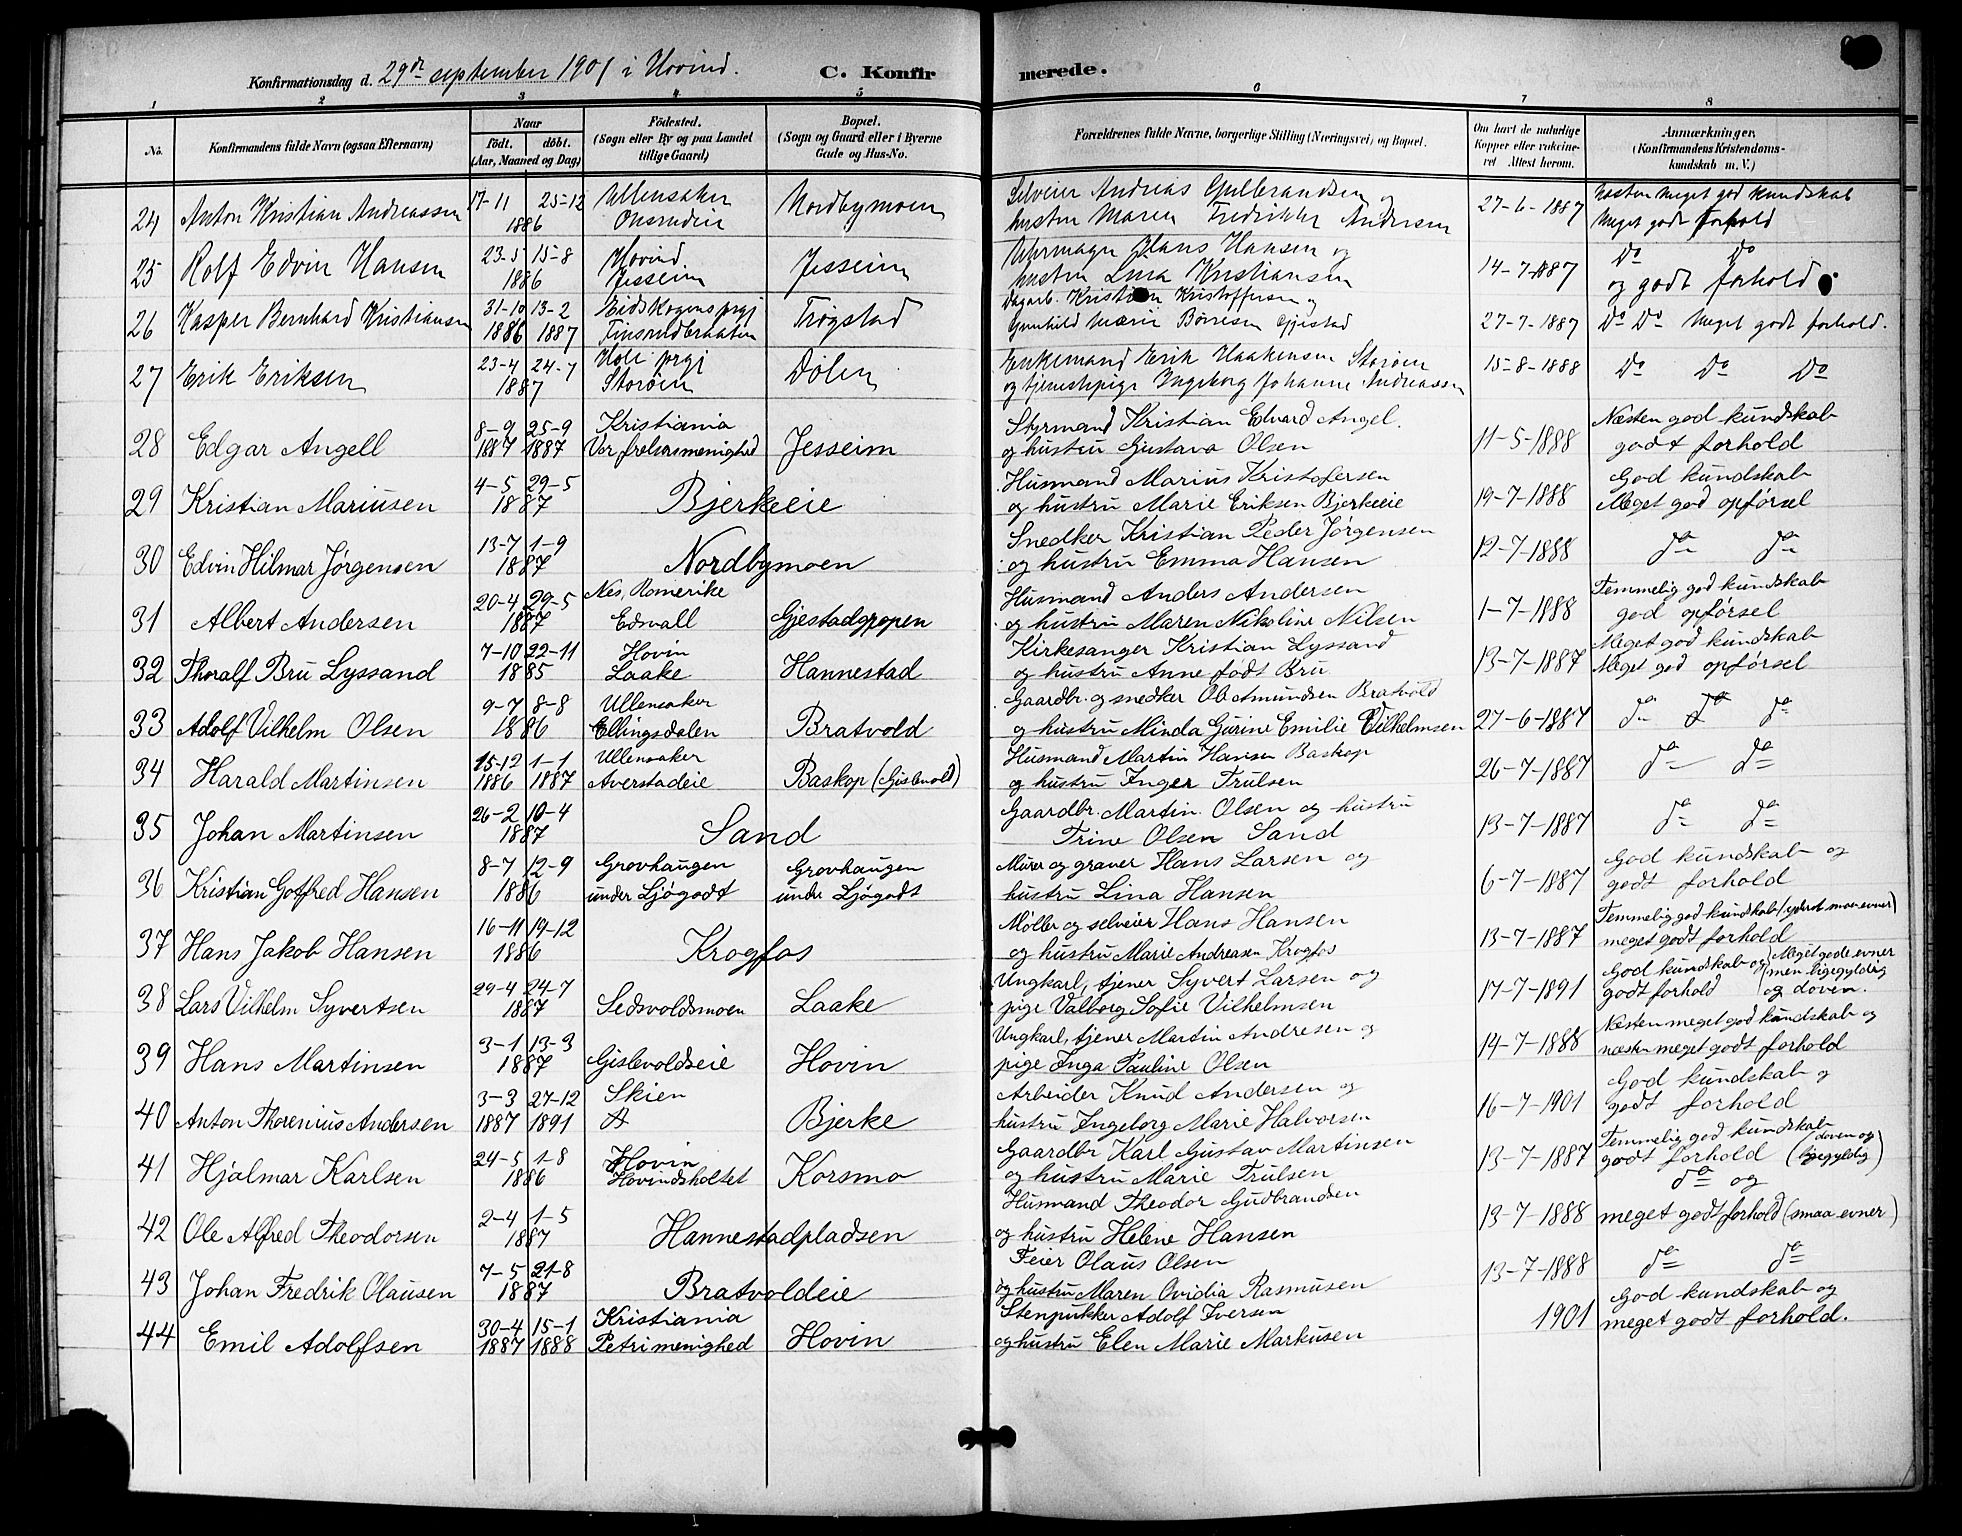 Konfirmationsdag d. 29de september 1901 i Hovind. C. Konfirmerede.
1 2 3 4 5 6 7 8
No. Konfirmandens fulde Navn (ogsaa Efternavn) Naar født. døbt. (Aar, Maaned og Dag) Fødested. (Sogn eller By og paa Landet tillige Gaard) Bopæl. (Sogn og Gaard eller i Byerne Gade og Hus-No. Forældrenes fulde Navne, borgerlige Stilling (Næringsvei) og Bopæl. Om havt de naturlige Kopper eller vakcineret Attest herom. Anmærkninger, (Konfirmandens Kristendomskundskab m. V.)
24 Anton Kristian Andreassen 17-11 25-12 1886 Ullensaker Nordbymoen Selveier Andreas Gulbrandsen og
hustru Maren Fredrikke Andersen 27-6-1887 næsten meget god kundskab
meget godt forhold
25 Rolf Edvin Hansen 23-5 15-8 1886 Hovind Jesseim Jesseim Uhrmager Hans Hansen og
hustru Lina Kristiansen 14-7-1887 do do
og godt forhold
26 Kasper Bernhard Kristiansen 31-10 1886 13-2 1887 Eidskogens prgj Trøgstad Dagarb. Kristian Kristoffersen og
Gunhild Marie Børresen Gjestad 27-7-1887 do do meget godt forhold.
27 Erik Eriksen 23-4 24-7 1887 Hole prgj Storøen Dølen Enkemand Erik Haakensen Storøen
og tjenestepige Ingeborg Johanne Andreassen 15-8-1888 do do do
28 Edgar Angell 8-9 1887 25-9 1887 Kristiania Vor frelsersmenighed Jesseim Styrmand Kristian Edvard Angel.
og hustru Gustava Olsen 11-5-1888 Næsten god kundskab
godt forhold
29 Kristian Mariusen 4-5 29-5 1887 Bjerkeeie Husmand Marius Kristofersen
og hustru Marie Eriksen Bjerkeeie 19-7-1888 God kundskab
Meget god opførsel
30 Edvin Hilmar Jørgensen 13-7 1-9 1887 Nordbymoen Snedker Kristian Peder Jørgensen
og hustru Emma Hansen 12-7-1888 do do
31 Albert Andersen 20-4 29-5 1887 Nes, Romerike Edvall Gjestadgropen Husmand Anders Andersen
og hustru Maren Nikoline Nilsen 1-7-1888 Temmelig god kundskab
god opførsel
32 Thoralf Bru Lyssand 7-10 22-11 1885 Hovin Laake Hannestad Kirkesanger Kristian Lyssand
og hustru Anne født Bru 13-7-1887 Meget god kundskab
Meget god opførsel
33 Adolf Vilhelm Olsen 9-7 8-8 1886 Ullensaker Ellingsdalen Bratvold Gaardbr. og snedker Ole Amundsen Bratvold
og hustru Minda Gurine Emilie Vilhelmsen 27-6-1887 do do do
34 Harald Martinsen 15-12 1886 1-1 1887 Ullensaker Averstadeie Baskop (Gislevold) Husmand Martin Hansen Baskop
og hustru Inger Trulsen 26-7-1887 do do
35 Johan Martinsen 26-2 10-4 1887 Sand Gaardbr. Martin Olsen og hustru
Trine Olsen Sand 13-7-1887 do do
36 Kristian Gotfred Hansen 8-7 12-9 1886 Grovhaugen under Ljøgodt Grovhaugen under Ljøgodt Murer og graver Hans Larsen og
hustru Lina Hansen 6-7-1887 God kundskab og
godt forhold
37 Hans Jakob Hansen 16-11 19-12 1886 Krogfos Møller og selveier Hans Hansen
og hustru Marie Andreasen Krogfos 13-7-1887 Temmelig god kundskab (yderst smaa evner)
meget godt forhold
38 Lars Vilhelm Syvertsen 29-4 24-7 1887 Sedsvoldsmoen Laake Ungkarl, tjener Syvert Larsen og
pige Valborg Sofie Vilhelmsen 17-7-1891 God kundskab og godt forhold (Meget gode evner men ligegyldig og doven.
39 Hans Martinsen 3-1 13-3 1887 Gislevoldseie Hovin Ungkarl, tjener Martin Andresen og
pige Inga Pauline Olsen 14-7-1888 Næsten meget god kundskab og
næsten meget godt forhold
40 Anton Thorenius Andersen 3-3 1887 27-12 1891 Skien Bjerke Arbeider Knud Andersen og
hustru Ingeborg Marie Halvorsen 16-7-1901 God kundskab og
godt forhold
41 Hjalmar Karlsen 24-5 1-8 1886 Hovin Hovindsholtet Korsmo Gaardbr Karl Gustav Martinsen
og hustru Marie Trulsen 13-7-1887 Temmelig god kundskab
godt forhold (doven og ligegyldig)
42 Ole Alfred Theodorsen 2-4 1-5 1887 Hannestadpladsen Husmand Theodor Gudbrandsen
og hustru Helene Hansen 13-7-1888 do og
meget godt forhold (smaa evner)
43 Johan Fredrik Olausen 7-5 21-8 1887 Bratvoldeie Feier Olaus Olsen
og hustru Maren Ovidia Rasmusen 13-7-1888 do do
44 Emil Adolfsen 30-4 1887 15-1 1888 Kristiania Petri menighed Hovin Stenpukker Adolf Iversen
og hustru Elen Marie Markusen 1901 God kundskab og
meget godt forhold.